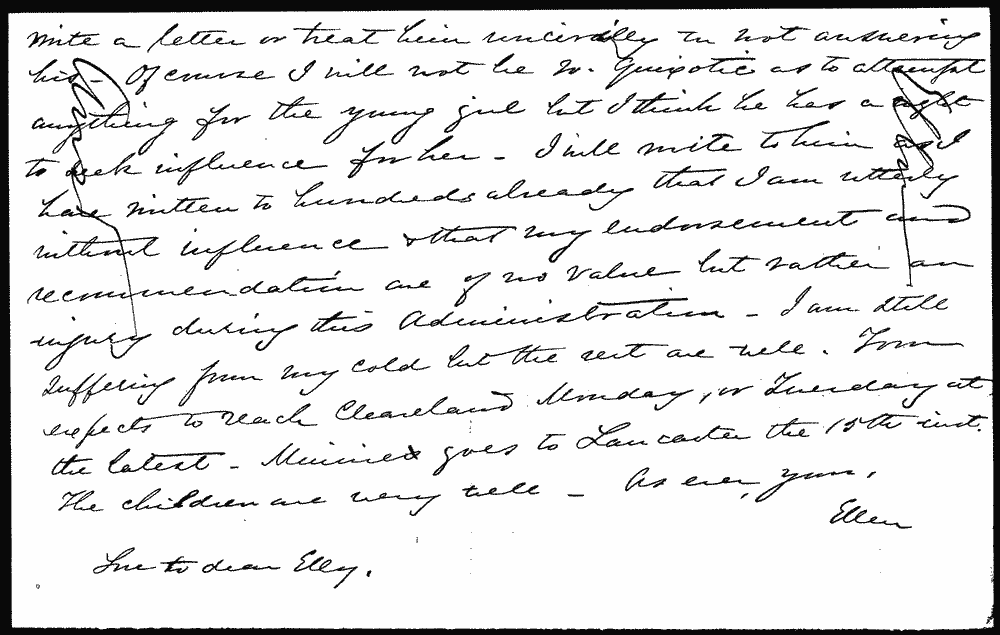 write a letter or treat him uncivilly in not answering
his - Of course I will not be so Quixotic as to attempt
anything for the young girl but I think he has a right
to seek influence for her - I will write to him as I
have written to hundreds already that I am utterly
without influence & that my endorsement and
recommendation are of no value but rather an
injury during this Administration - I am still
suffering from my cold but the rest are well. Tom
expects to reach Cleaveland Monday, or Tuesday at
the latest - Minnie goes to Lancaster the 15th inst.
The children are very well - As ever, yours,
Ellen
Love to dear Elly.